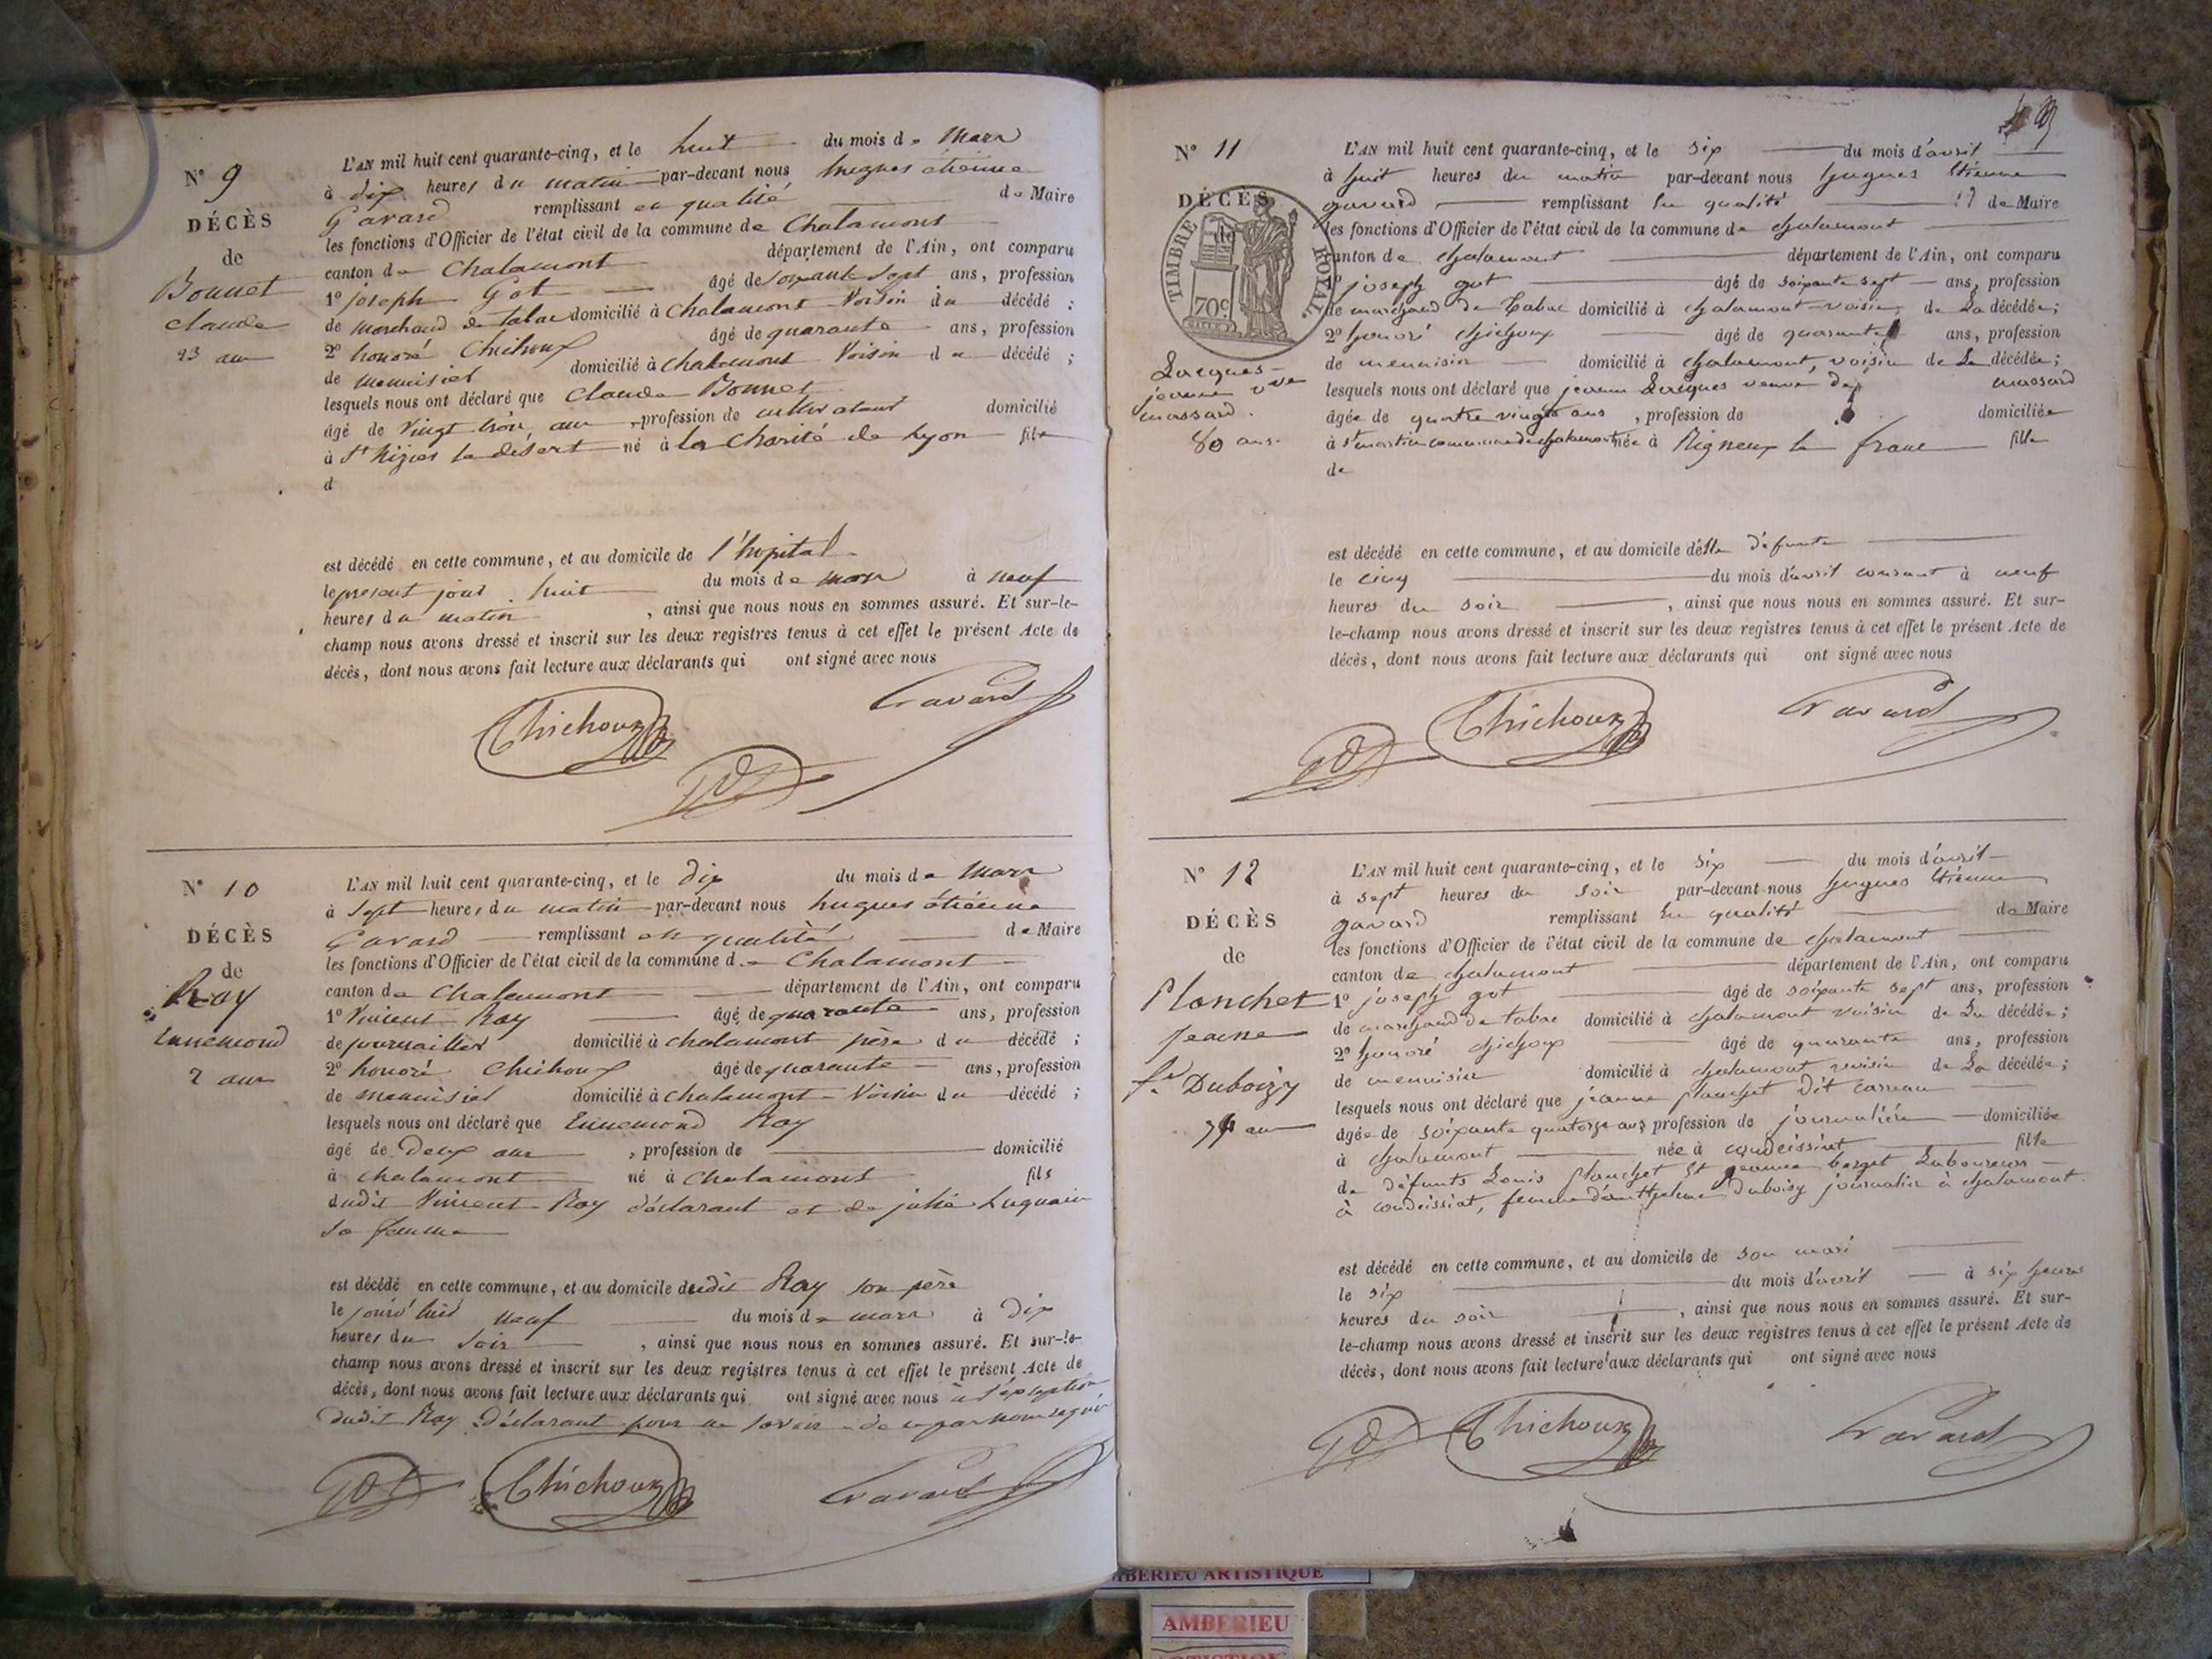 N° 9
DÉCÈS
de
Bonnet
claude
23 ans
L'AN mil huit cent quarante-cinq, et le huit du mois de Mars
à dix heures du matin par-devant nous hugues étienne
Gavard remplissant en qualité de Maire
les fonctions d'Officier de l'état civil de la commune de Chalamont
canton de Chalamont département de l'Ain, ont comparu
1° joseph Got âgé de soixante sept ans, profession
de marchand de tabac domicilié à Chalamont voisin du décédé ;
2° honoré Chichoux âgé de quarante ans, profession
de menuisier domicilié à Chalamont Voisin du décédé ;
lesquels nous ont déclaré que Claude Bonnet
âgé de vingt trois ans, profession de cultivateur domicilié
à St Nizier le désert né à la Charité de Lyon fils
d
est décédé en cette commune, et au domicile de l'hopital
le présent jour huit du mois de mars à neuf
heures du matin, ainsi que nous nous en sommes assuré. Et sur-le-
champ nous avons dressé et inscrit sur les deux registres tenus à cet effet le présent Acte de
décès, dont nous avons fait lecture aux déclarants qui ont signé avec nous
Chichoux Gavard
Got
N° 10
DÉCÈS
de
Ray
Ennemond
2 ans
L'AN mil huit cent quarante-cinq, et le dix du mois de Mars
à Sept heures du matin par-devant nous hugues étienne
Gavard remplissant en qualité de Maire
les fonctions d'Officier de l'état civil de la commune de Chalamont
canton de Chalamont département de l'Ain, ont comparu
1° Vincent Ray âgé de quarante ans, profession
de journaillier domicilié à chalamont père du décédé ;
2° honoré Chichoux âgé de quarante ans, profession
de menuisier domicilié à chalamont Voisin du décédé ;
lesquels nous ont déclaré que Ennemond Ray
âgé de Deux ans, profession de domicilié
à chalamont né à Chalamont fils
dudit Vincent Ray déclarant et de julie
sa femme
est décédé en cette commune, et au domicile dudit Ray son père
le neuf du mois de mars à Dix
heures du soir, ainsi que nous nous en sommes assuré. Et sur-le-
champ nous avons dressé et inscrit sur les deux registres tenus à cet effet le présent Acte de
décès, dont nous avons fait lecture aux déclarants qui ont signé avec nous à l'exception
dudit Ray Déclarant pour ne savoir de ce par nous requis
Got Chichoux Gavard
N° 11
DÉCÈS
de
TIMBRE ROYAL
70c
Lacques
jeanne vve
massard.
80 ans.
L'AN mil huit cent quarante-cinq, et le six du mois d'avril
à huit heures du matin par-devant nous hugues Etienne
gavard remplissant En qualité de Maire
les fonctions d'Officier de l'état civil de la commune de chalamont
canton de chalamont département de l'Ain, ont comparu
1° joseph got âgé de soixante sept ans, profession
de marchand de Tabac domicilié à chalamont voisin de La décédée;
2° honoré chichoux âgé de quarante ans, profession
de menuisier domicilié à chalamont, voisin de La décédée;
lesquels nous ont déclaré que jeanne Lacques veuve de massard
âgée de quatre vingts ans, profession de domiciliée
à St martin commune de chalamont née à Rigneux le franc fille
de
est décédé en cette commune, et au domicile d'elle défunte
le cinq du mois d'avril courant à neuf
heures du soir, ainsi que nous nous en sommes assuré. Et sur-
le-champ nous avons dressé et inscrit sur les deux registres tenus à cet effet le présent Acte de
décès, dont nous avons fait lecture aux déclarants qui ont signé avec nous
Got Chichoux Gavard
N° 12
DÉCÈS
de
Planchet
jeanne
fe Duboizy
74 ans
L'AN mil huit cent quarante-cinq, et le six du mois d'avril
à sept heures du soir par-devant nous hugues Etienne
gavard remplissant En qualité de Maire
les fonctions d'Officier de l'état civil de la commune de chalamont
canton de chalamont département de l'Ain, ont comparu
1° joseph got âgé de soixante sept ans, profession
de marchand de tabac domicilié à chalamont voisin de La décédée;
2° honoré chichoux âgé de quarante ans, profession
de menuisier domicilié à chalamont voisin de La décédée;
lesquels nous ont déclaré que jeanne planchet dit carreau
âgée de soixante quatorze ans profession de journalière domiciliée
à chalamont née à condeissiat fille
de défunts Louis planchet Et jeanne berget Laboureurs
à condeissiat, femme d'anthelme Duboisy journalier à chalamont.
est décédé en cette commune, et au domicile de son mari
le six du mois d'avril à six heures
heures du soir, ainsi que nous nous en sommes assuré. Et sur-
le-champ nous avons dressé et inscrit sur les deux registres tenus à cet effet le présent Acte de
décès, dont nous avons fait lecture aux déclarants qui ont signé avec nous
Got Chichoux Gavard
MBERIEU ARTISTIQUE
AMBERIEU
ARTISTIQUE